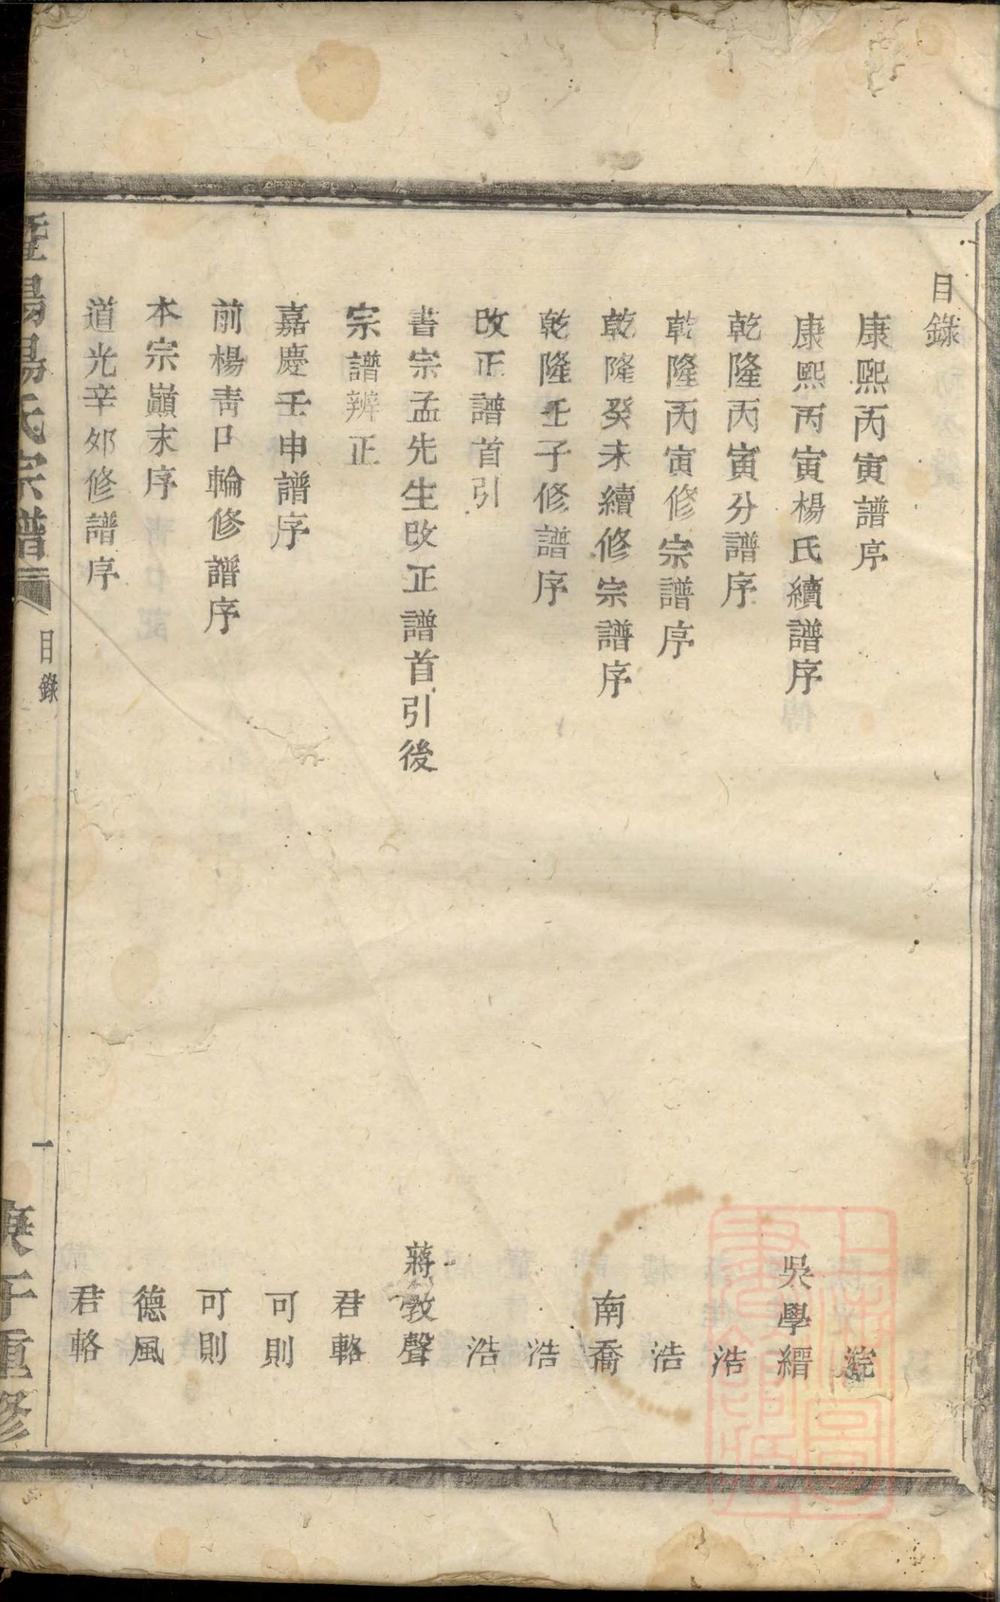 目錄
康熙丙寅譜序 浣
康熙丙寅楊氏續譜序 吳學縉
乾隆丙寅分譜序 浩
乾隆丙寅修宗譜序 浩
乾隆癸未續修宗譜序 南喬
乾隆壬子修譜序 浩
改正譜首引 浩
書宗孟先生改正譜首引後 蔣敦聲
宗譜辨正 君輅
嘉慶壬申譜序 可則
前楊青口輪修譜序 可則
本宗顚末序 德風
道光辛卯修譜序 君輅
暨陽楊氏宗譜 目錄 一 庚午重修
上海圖書館藏